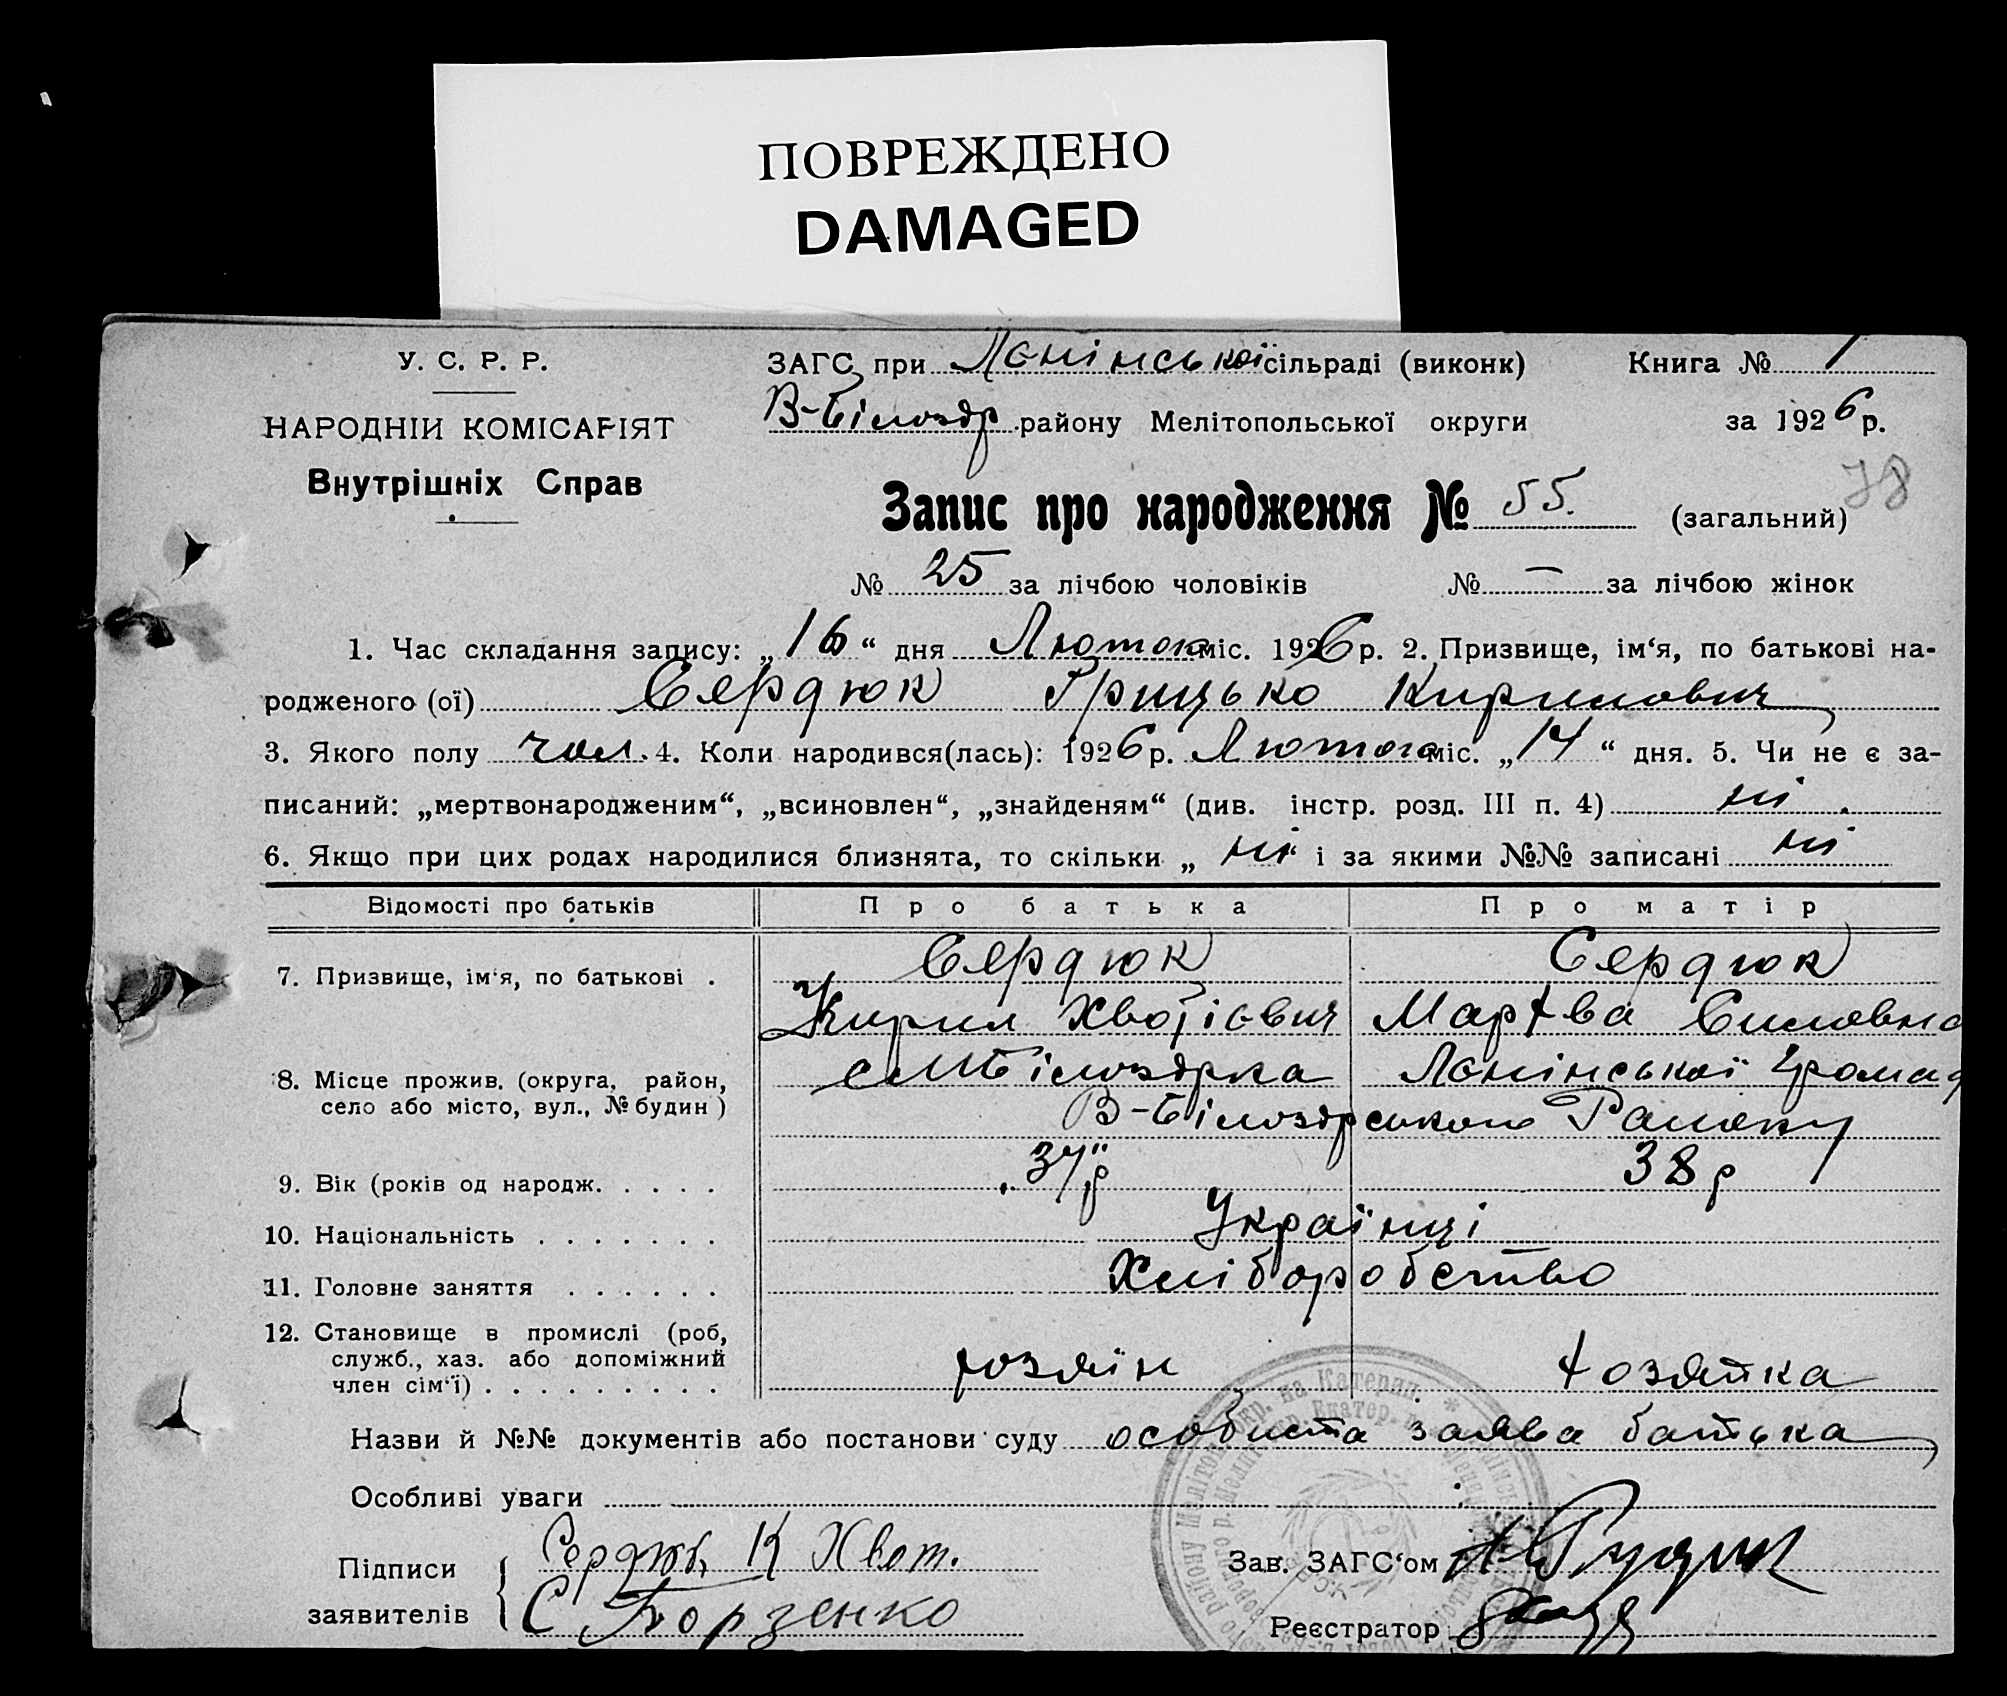 ПОВРЕЖДЕНО
DAMAGED
У. С. Р. Р.
НАРОДНІЙ КОМІСАРІЯТ
Внутрішніх Справ
ЗАГС при Лєнінської сільраді (виконк) Книга № 1
В-Білозєр району Мелітопольської округи за 1926 р.
78
Запис про народження № 55. (загальний)
№ 25 за лічбою чоловіків № — за лічбою жінок
1. Час складання запису: „16“ дня Люток міс. 1926 р. 2. Призвище, ім‘я, по батькові на-
родженого (ої) Сердюк Грицько Кирилович
3. Якого полу чол. 4. Коли народився(лась): 1926 р. Лютого міс. „14“ дня. 5. Чи не є за-
писаний: „мертвонародженим“, „всиновлен“, „знайденям“ (див. інстр. розд. III п. 4) ні.
6. Якщо при цих родах народилися близнята, то скільки „ні“ і за якими №№ записані ні
Відомості про батьків Про батька Про матір
7. Призвище, ім‘я, по батькові . Сердюк Сердюк
Кирил Хвотієвич Мархва Силовна
8. Місце прожив. (округа, район, Лєнінської Громад
село або місто, вул., № будин)
В-Білозєрського Району
9. Вік (років од народж. . . . . 37 р 38 р
10. Національність . . . . . . . Українці
11. Головне заняття . . . . . . Хліборобство
12. Становище в промислі (роб,
служб., хаз. або допоміжний хозяїн хозяйка
член сім‘ї) . . . . . . . . .
Назви й №№ документів або постанови суду особиста заява батька
Особливі уваги
Підписи Сердюк К Хвот. Зав. ЗАГС‘ом
заявителів С Борзенко Реєстратор